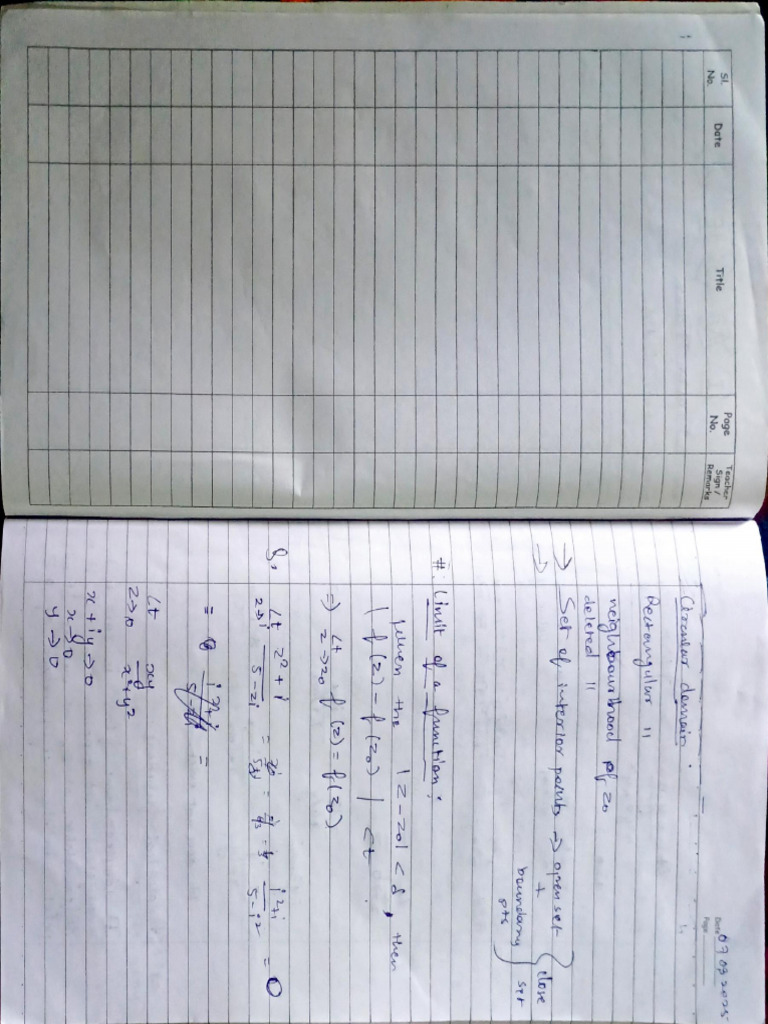 Sl. No.
Date
Title
Page No.
Teacher Sign/ Remarks
1
Date 07 03 2025
Page
Circular domain :
Rectangular "
neighbourhood of z0
deleted "
→ Set of interior points → open set } close set
→ + boundary pts
#: Limit of a function :
given the |z-z0| < δ, then
| f(z) - f(z0) | < t.
⇒ Lt z→z0 f(z) = f(z0)
Lt z→i z²+i / 5-zi
i²+i / 5-i² = 0
Lt z→0 xy / x²+y²
x+iy→0
x→0
y→0